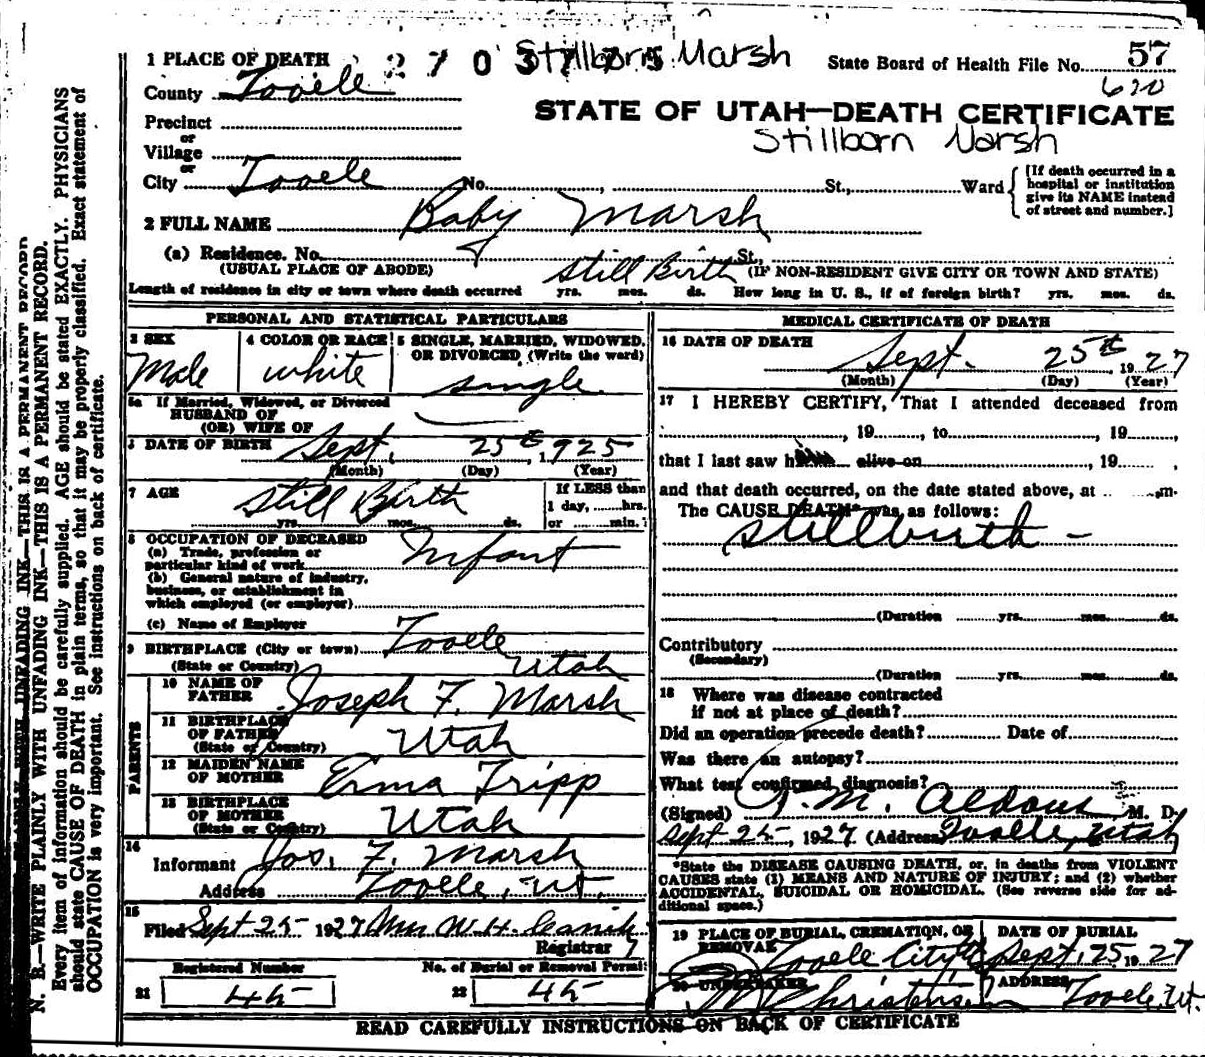 2 7 0 3 7 7 5 Stillborn Marsh
1 PLACE OF DEATH
State Board of Health File No. 57
620
County Tooele
STATE OF UTAH—DEATH CERTIFICATE
Stillborn Marsh
Precinct
or
Village
or
City Tooele No. , St., Ward
[If death occurred in a
hospital or institution
give its NAME instead
of street and number.]
2 FULL NAME Baby Marsh
(a) Residence. No. St.,
(USUAL PLACE OF ABODE) Still Birth (IF NON-RESIDENT GIVE CITY OR TOWN AND STATE)
Length of residence in city or town where death occurred yrs. mos. ds. How long in U. S., if of foreign birth? yrs. mos. ds.
PERSONAL AND STATISTICAL PARTICULARS
3 SEX
Male
4 COLOR OR RACE
white
5 SINGLE, MARRIED, WIDOWED,
OR DIVORCED (Write the word)
single
5a If Married, Widowed, or Divorced
HUSBAND OF
(OR) WIFE OF
6 DATE OF BIRTH Sept. 25th, 1925
(Month) (Day) (Year)
7 AGE Still Birth
yrs. mos. ds.
If LESS than
1 day, hrs.
or min.?
8 OCCUPATION OF DECEASED
(a) Trade, profession or
particular kind of work Infant
(b) General nature of industry,
business, or establishment in
which employed (or employer)
(c) Name of Employer
9 BIRTHPLACE (City or town) Tooele
(State or Country) Utah
PARENTS
10 NAME OF
FATHER Joseph F. Marsh
11 BIRTHPLACE
OF FATHER
(State or Country) Utah
12 MAIDEN NAME
OF MOTHER Erma Tripp
13 BIRTHPLACE
OF MOTHER
(State or Country) Utah
14
Informant Jos. F. Marsh
Address Tooele, Ut.
15
Filed Sept 25 1927 Mrs W. H.
Registrar
Registered Number
21 45
No. of Burial or Removal Permit
22 45
MEDICAL CERTIFICATE OF DEATH
16 DATE OF DEATH
Sept. 25th, 1927
(Month) (Day) (Year)
17 I HEREBY CERTIFY, That I attended deceased from
, 19 , to , 19 ,
that I last saw h alive on , 19 ,
and that death occurred, on the date stated above, at m.
The CAUSE DEATH* was as follows:
Stillbirth -
(Duration yrs. mos. ds.
Contributory
(Secondary)
(Duration yrs. mos. ds.
18 Where was disease contracted
if not at place of death?
Did an operation precede death? Date of
Was there an autopsy?
What test confirmed diagnosis?
(Signed) J. M. Aldous M. D.
Sept 25, 1927 (Address Tooele, Utah
*State the DISEASE CAUSING DEATH, or, in deaths from VIOLENT
CAUSES state (1) MEANS AND NATURE OF INJURY; and (2) whether
ACCIDENTAL, SUICIDAL OR HOMICIDAL. (See reverse side for ad-
ditional space.)
19 PLACE OF BURIAL, CREMATION, OR
REMOVAL Tooele City
DATE OF BURIAL
Sept. 25 1927
20 UNDERTAKER
Christensen
ADDRESS Tooele, Ut.
READ CAREFULLY INSTRUCTIONS ON BACK OF CERTIFICATE
N. B.—WRITE PLAINLY WITH UNFADING INK—THIS IS A PERMANENT RECORD.
Every item of information should be carefully supplied. AGE should be stated EXACTLY. PHYSICIANS
should state CAUSE OF DEATH in plain terms, so that it may be properly classified. Exact statement of
OCCUPATION is very important. See instructions on back of certificate.